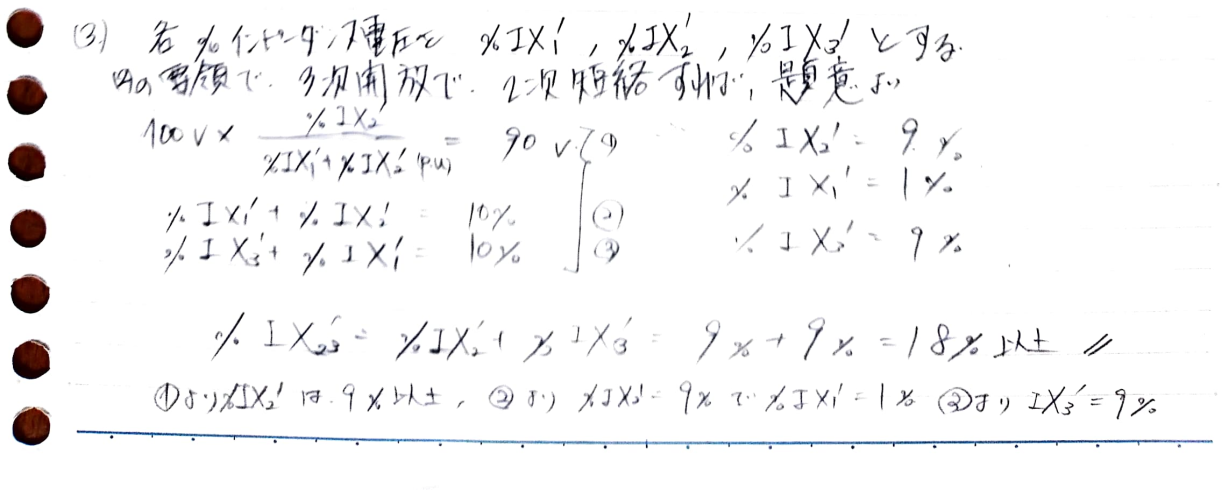 (3) 各%インピーダンス電圧を %IX₁', %IX₂', %IX₃' とする.
(2)の要領で. 3次開放で. 2次短絡すれば, 題意より
100V × %IX₂' / (%IX₁' + %IX₂' (p.u)) = 90 V. ①
%IX₂' = 9 %
%IX₁' + %IX₂' = 10% ②
%IX₁' = 1%
%IX₃' + %IX₁' = 10% ③
%IX₃' = 9 %
%IX₂₃' = %IX₂' + %IX₃' = 9% + 9% = 18% 以上 //
①より%IX₂' は 9%以上, ②より %IX₂' = 9% で %IX₁' = 1% ③より IX₃' = 9%